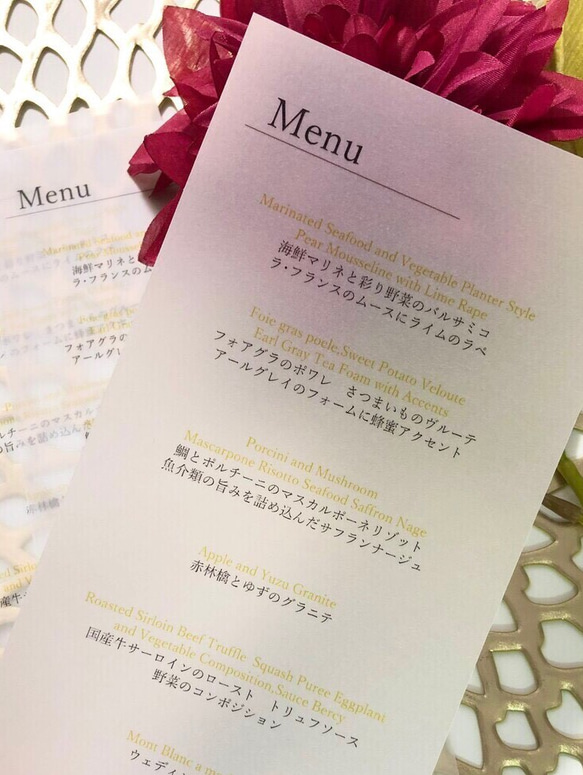 Menu
Marinated Seafood and Vegetable Planter Style
Pear Mousseline with Lime Rape
海鮮マリネと彩り野菜のバルサミコ
ラ・フランスのムースにライムのラペ
Foie gras poele,Sweet Potato Veloute
Earl Gray Tea Foam with Accents
フォアグラのポワレ さつまいものヴルーテ
アールグレイのフォームに蜂蜜アクセント
Porcini and Mushroom
Mascarpone Risotto Seafood Saffron Nage
鯛とポルチーニのマスカルポーネリゾット
魚介類の旨みを詰め込んだサフランナージュ
Apple and Yuzu Granite
赤林檎とゆずのグラニテ
Roasted Sirloin Beef Truffle Squash Puree Eggplant
and Vegetable Composition,Sauce Bercy
国産牛サーロインのロースト トリュフソース
野菜のコンポジション
Mont Blanc a m
ウェディン
Menu